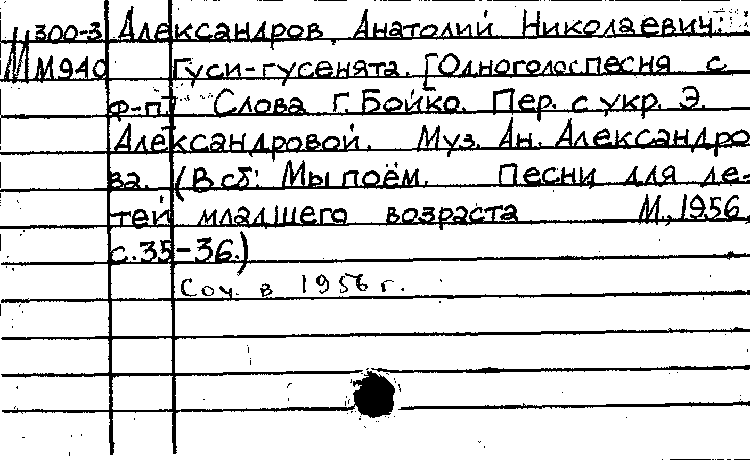 М 300-3 Александров, Анатолий Николаевич.
М940 Гуси-гусенята. [Одноголос песня с
ф-п.] Слова Г. Бойко. Пер. с укр. Э.
Александровой. Муз. Ан. Александро
ва. (В сб: Мы поём. Песни для де-
тей младшего возраста М., 1956,
с.35-36.)
Соч. в 1956 г.